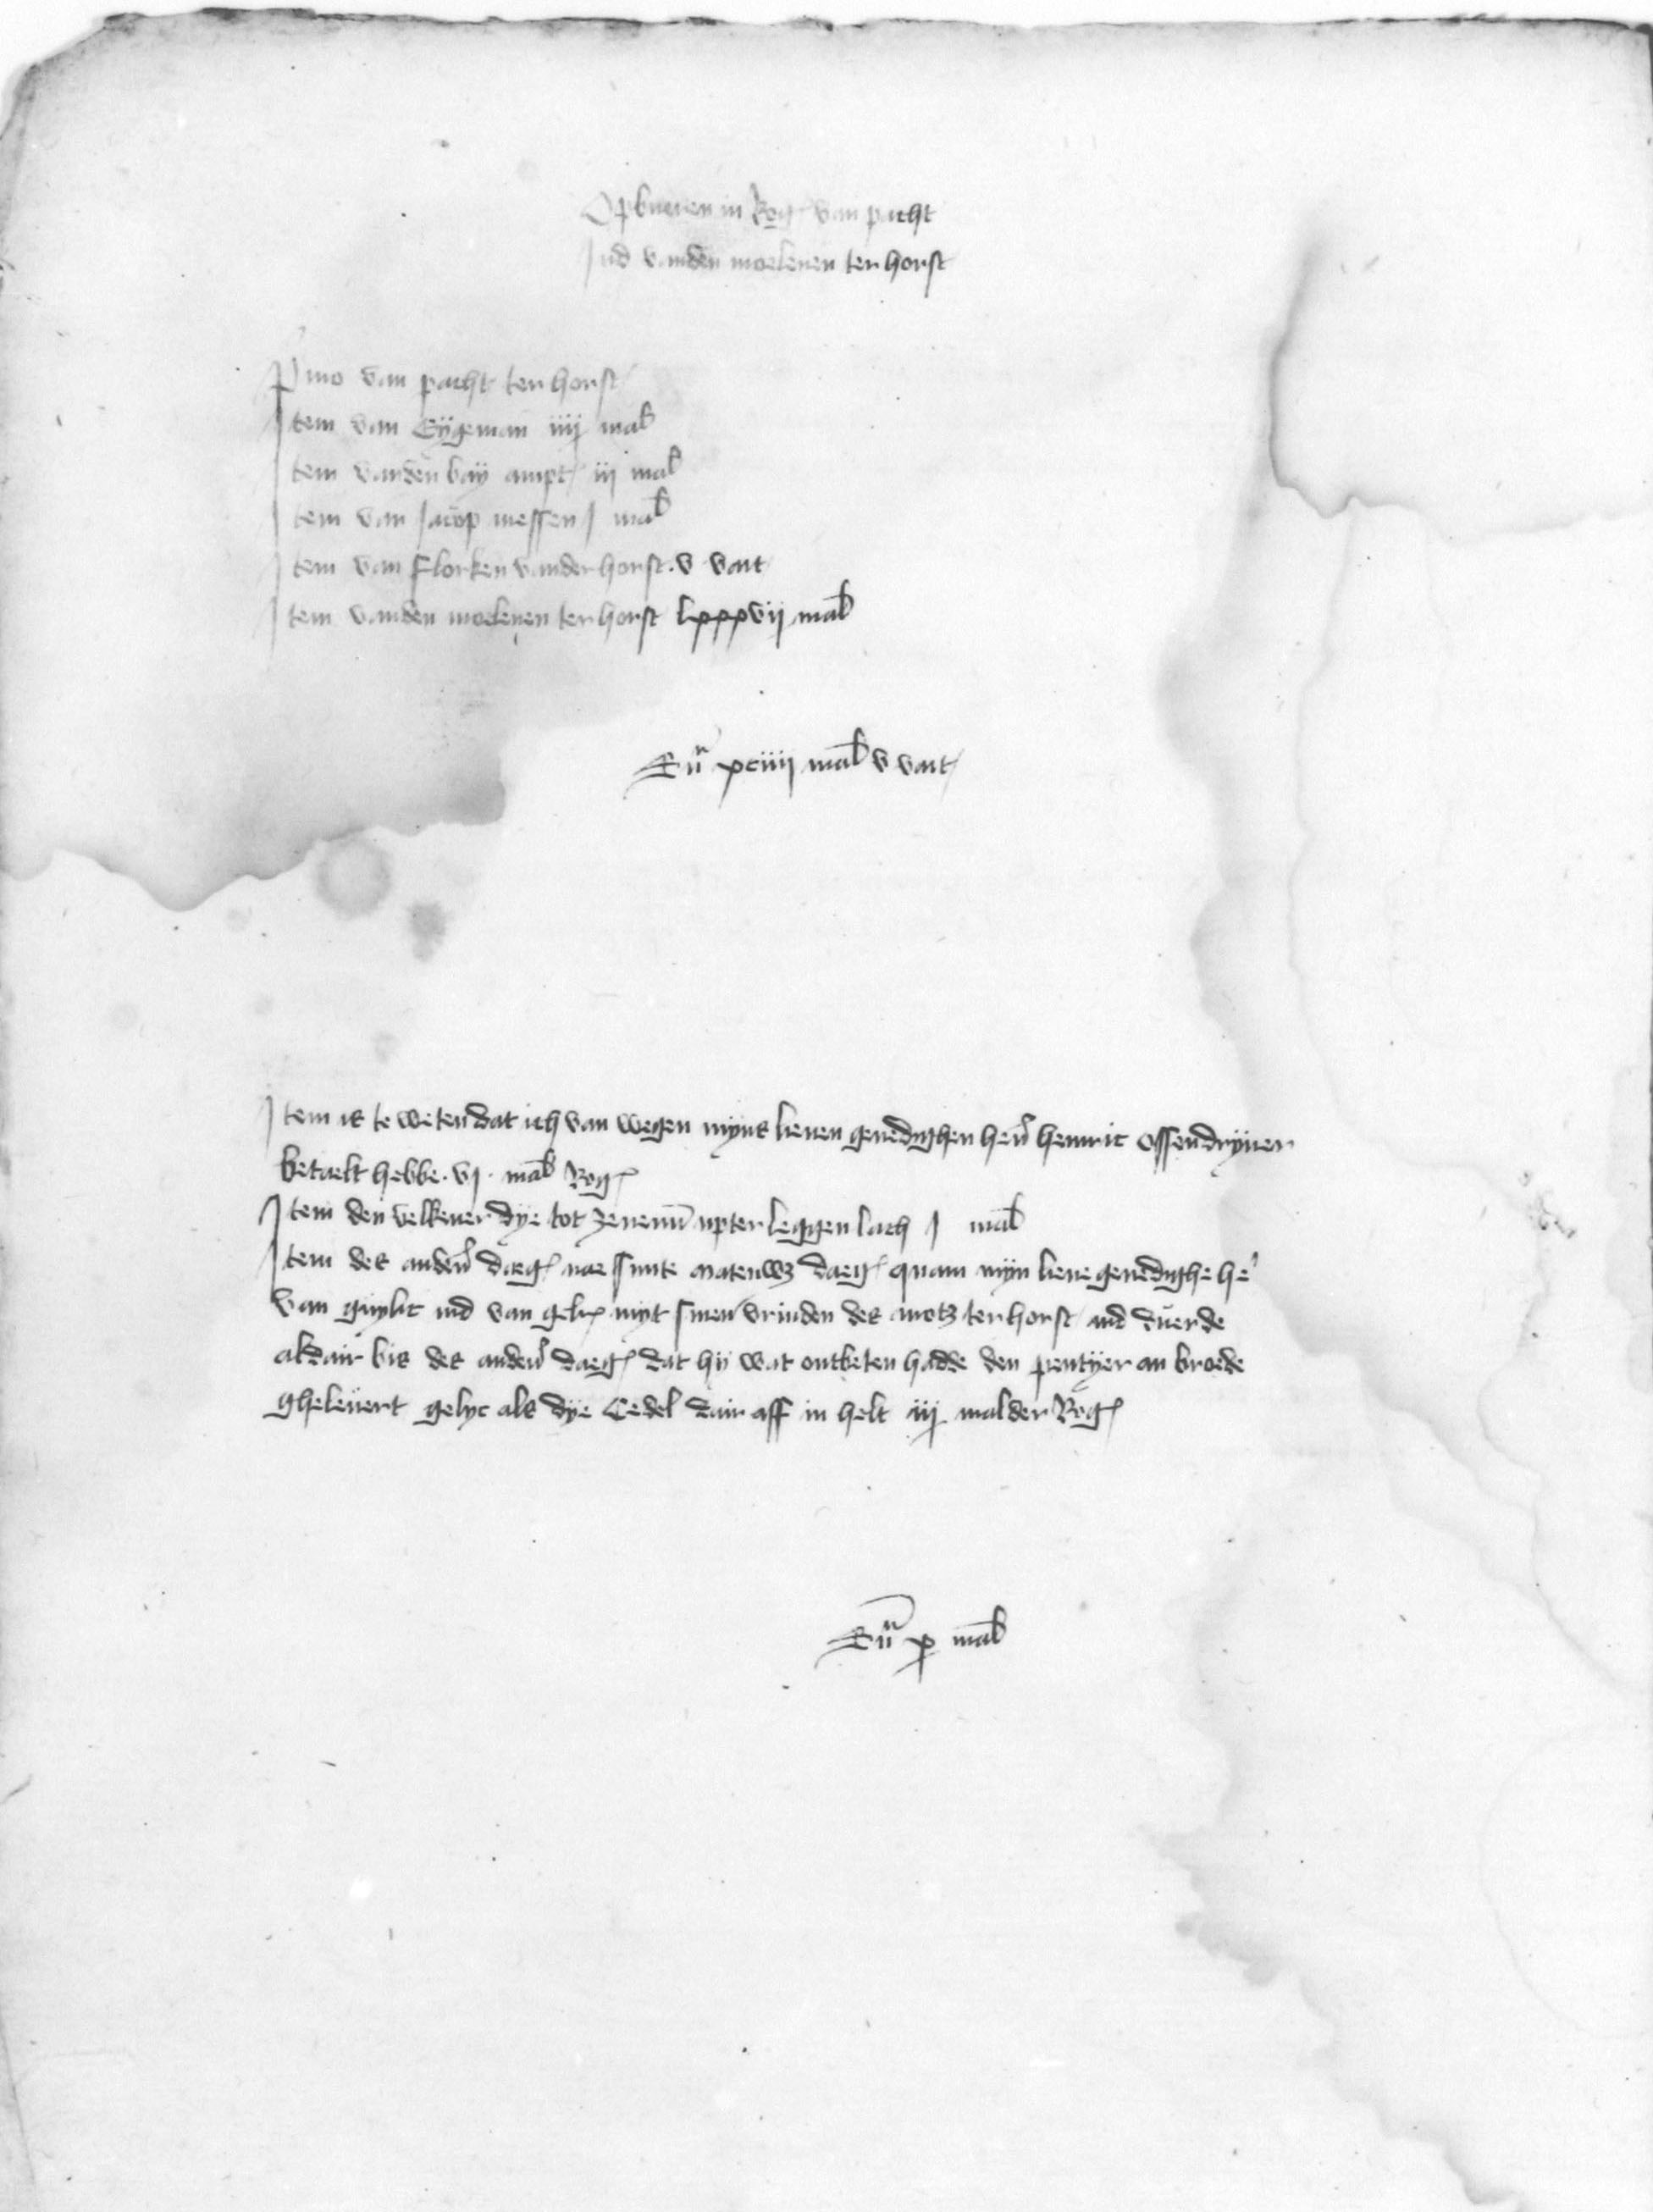 Opbueren in Rog van pacht
Ind vanden moelenen ter horst
Pmo van pacht ter horst
Item van Eygeman iiij mald
Item vanden bay ampt iij mald
Item van Jacop messen j mald
Item van Florken vander horst . v vait
Item vanden moelenen ter horst lxxxvij mald
Sum xciiij mald v vait
Item is te weten dat ich van wegen myns lieuen genedighen hern henric Ossendryuer
betaelt hebbe . vj . mald Rog
Item den velkener dye tot zeuenum upter leggen lach j mald
Item des anderen daeg nae sunte mateuwz daeg quam myn lieue genedighe her
van guylic ind van gelre myt sinen vrinden des auotz ter horst ind duerde
aldair bis des anderen daeg dat hy wat ontbeten hadde den pentyer an broede
gheleuert gelyc als dye Cedel dair aff in helt iij malder Rog
Sum x mald